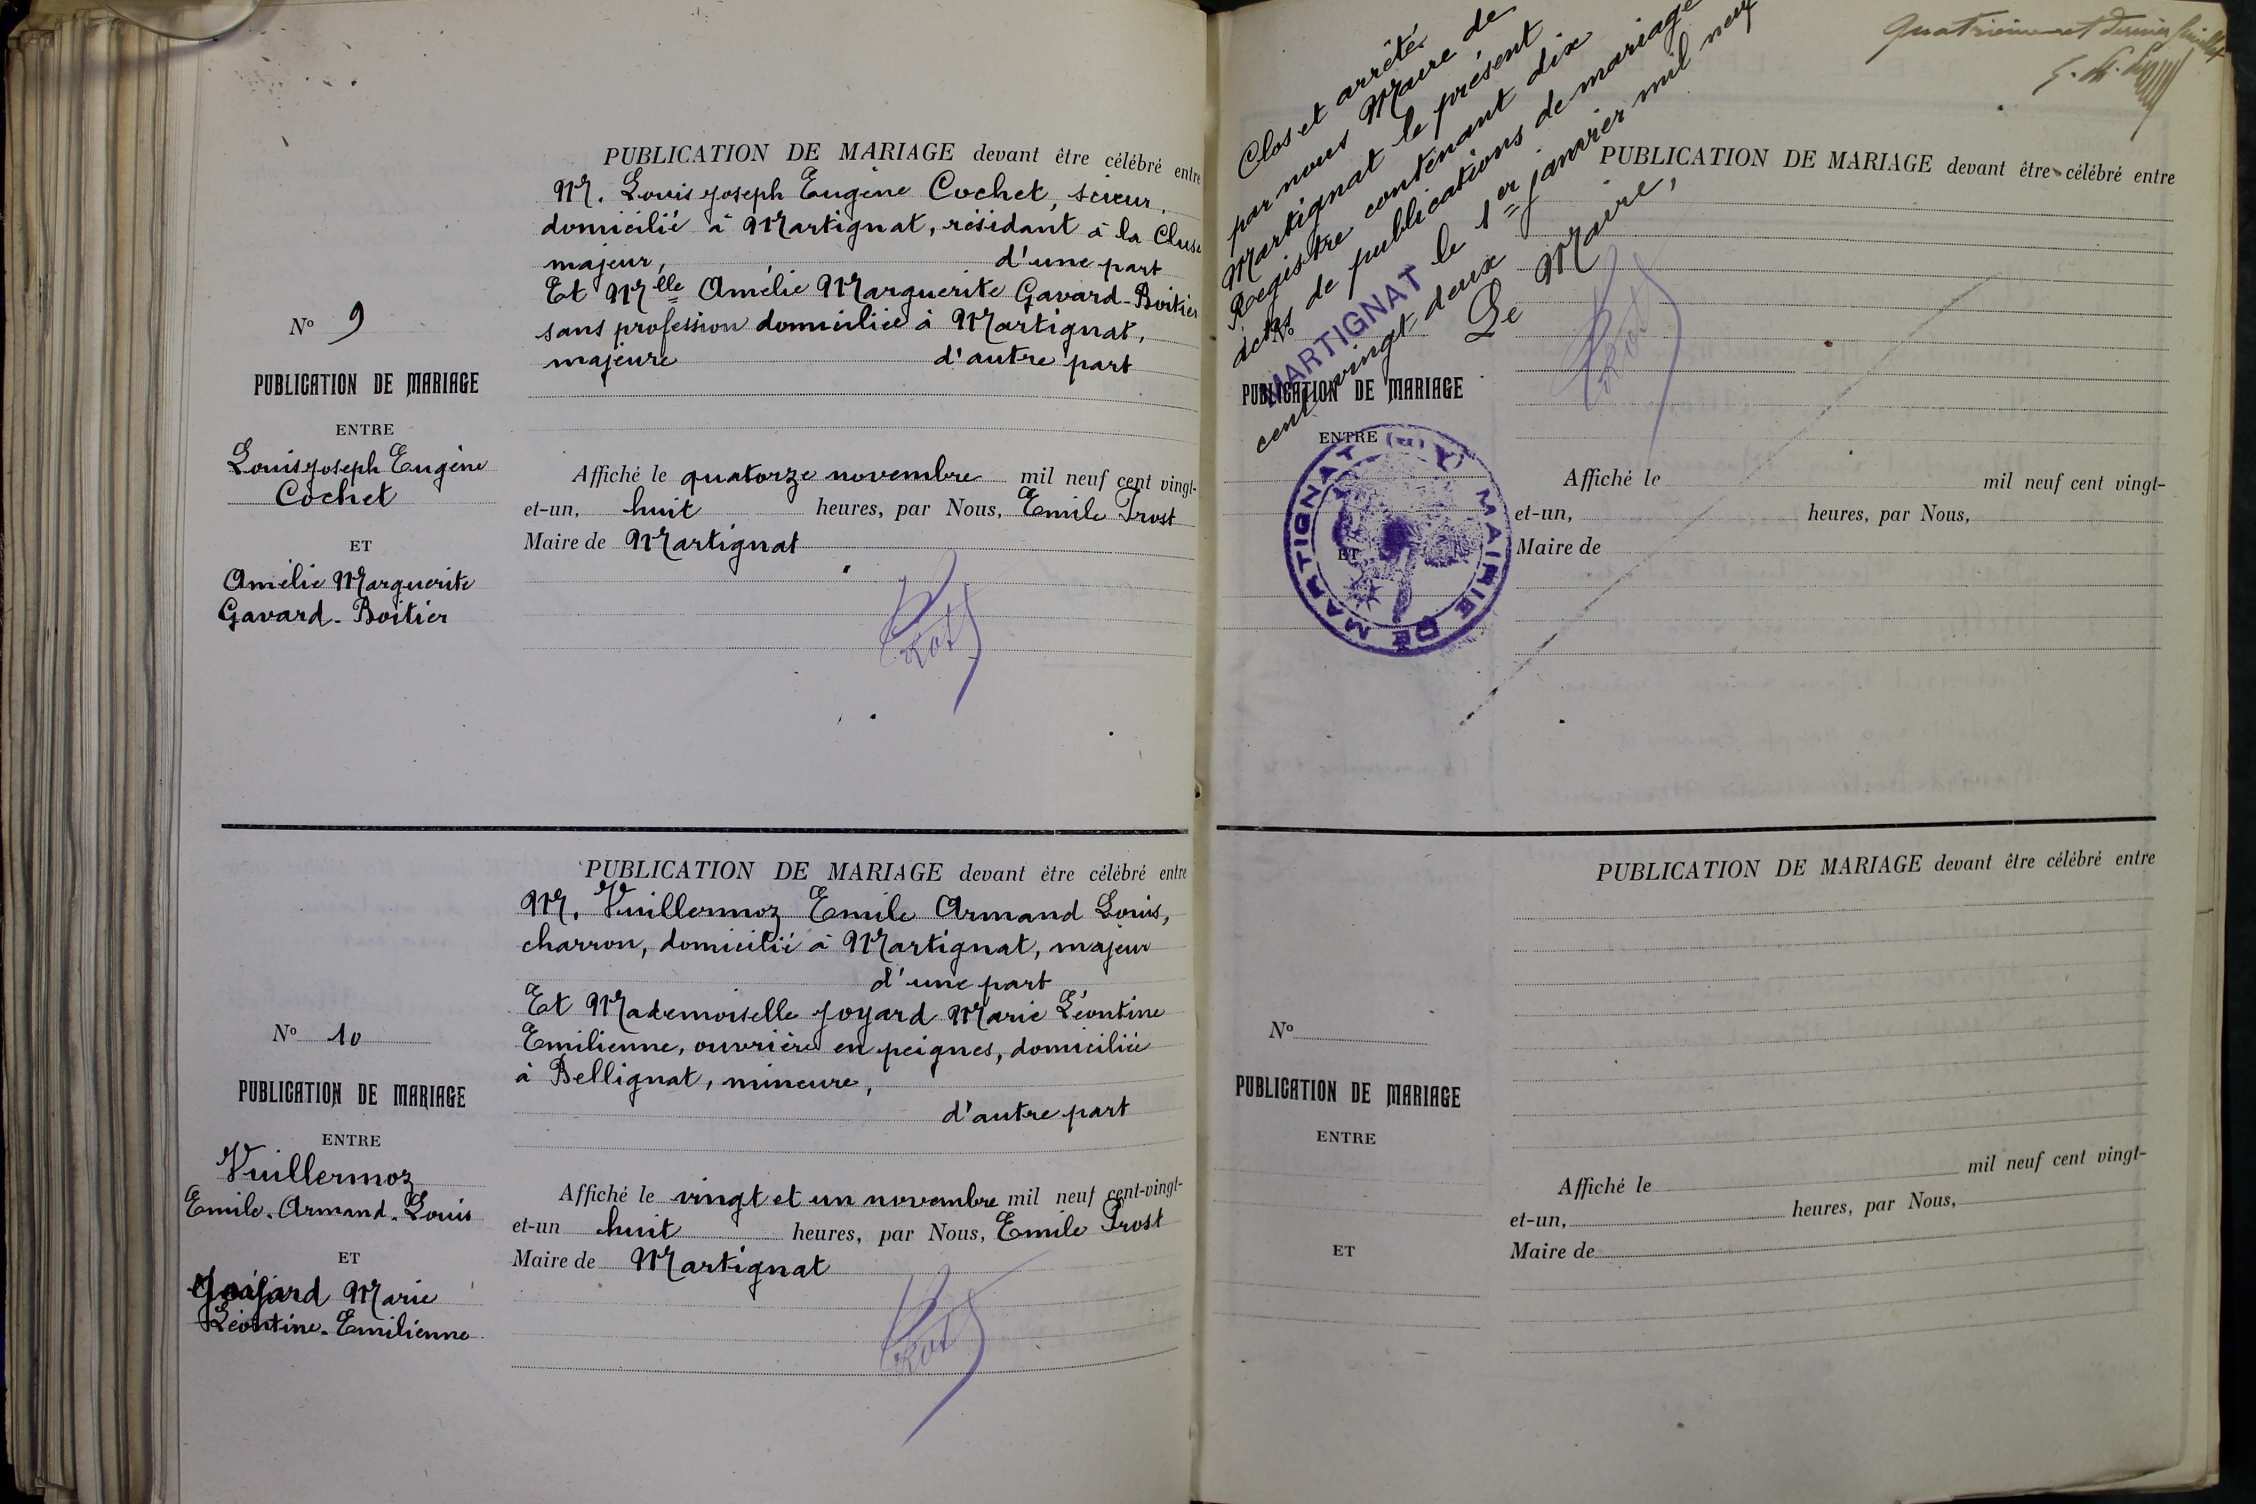 PUBLICATION DE MARIAGE devant être célébré entre
Mr. Louis Joseph Eugène Cochet, scieur,
domicilié à Martignat, résidant à la Cluse
majeur, d'une part
Et Melle Amélie Marguerite Gavard-Boitier
sans profession domiciliée à Martignat,
majeure d'autre part
No 9
PUBLICATION DE MARIAGE
ENTRE
Louis Joseph Eugène
Cochet
ET
Amélie Marguerite
Gavard-Boitier
Affiché le quatorze novembre mil neuf cent vingt-
et-un, huit heures, par Nous, Emile Prost
Maire de Martignat
Prost
PUBLICATION DE MARIAGE devant être célébré entre
Mr. Vuillermoz Emile Armand Louis,
charron, domicilié à Martignat, majeur
d'une part
Et Mademoiselle Joyard Marie Léontine
Emilienne, ouvrière en peignes, domiciliée
à Bellignat, mineure,
d'autre part
No 10
PUBLICATION DE MARIAGE
ENTRE
Vuillermoz
Emile-Armand-Louis
ET
Marie
Léontine-Emilienne
Affiché le vingt et un novembre mil neuf cent-vingt-
et-un huit heures, par Nous, Emile Prost
Maire de Martignat
Prost
Quatrième et dernier feuillet
Clos et arrêté
par nous Maire de
Martignat le présent
Registre contenant dix
actes de publications de mariage
MARTIGNAT le 1er janvier mil neuf
cent vingt deux
Le Maire,
Prost
PUBLICATION DE MARIAGE devant être célébré entre
No
PUBLICATION DE MARIAGE
ENTRE
ET
MAIRIE DE MARTIGNAT
Affiché le mil neuf cent vingt-
et-un, heures, par Nous,
Maire de
PUBLICATION DE MARIAGE devant être célébré entre
No
PUBLICATION DE MARIAGE
ENTRE
ET
Affiché le mil neuf cent vingt-
et-un, heures, par Nous,
Maire de